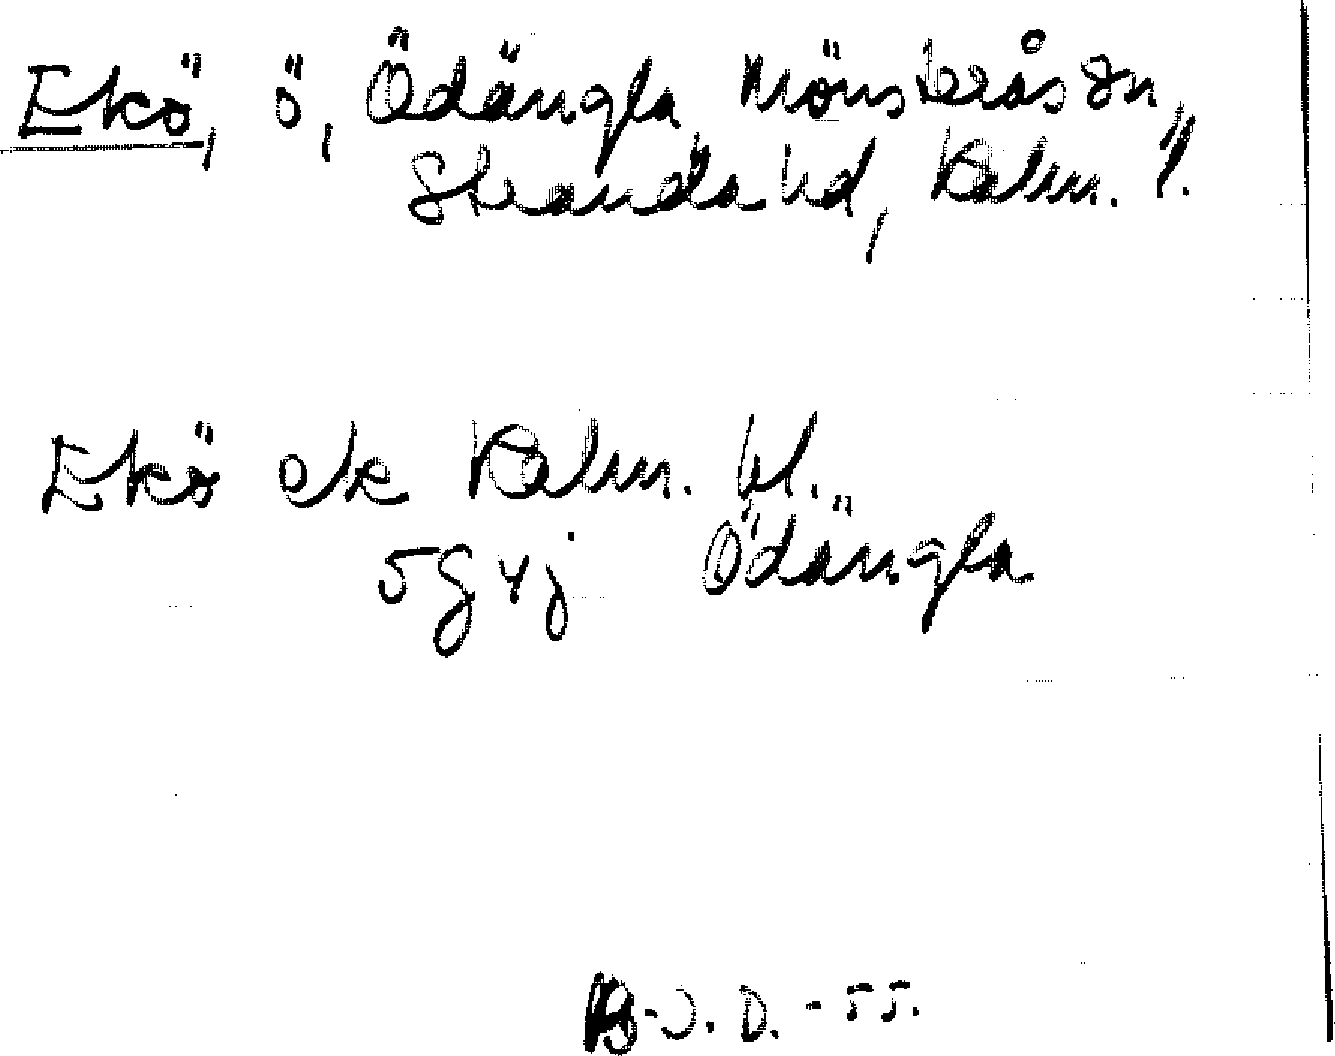 Ekö, ö, Ödängla, Mönsterås sn,
Stranda hd, Kalm. l.
Ekö ek Kalm. bl.
5g4j Ödängla
B-J. D. -55.